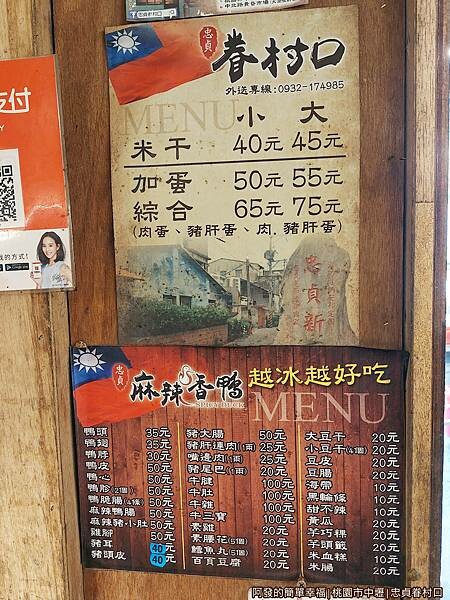 忠貞眷村口
忠貞
眷村口
外送專線:0932-174985
MENU 小 大
米干 40元 45元
加蛋 50元 55元
綜合 65元 75元
(肉蛋、豬肝蛋、肉.豬肝蛋)
忠貞新
支付
忠貞
麻辣香鴨
SPICY DUCK
越冰越好吃
MENU
鴨頭 35元
鴨翅 35元
鴨脖 30元
鴨皮 50元
鴨心 50元
鴨胗(2個) 50元
鴨脆腸(4條) 50元
麻辣鴨腸 50元
麻辣豬小肚 50元
雞腳 50元
豬耳 40元
豬頭皮 40元
豬大腸 50元
豬肝連肉(1兩) 25元
嘴邊肉(1兩) 25元
豬尾巴(1兩) 20元
牛腱 100元
牛肚 100元
牛雜 100元
牛三寶 100元
素雞 20元
素腰花(5個) 20元
鱈魚丸(5個) 20元
百頁豆腐 20元
大豆干 20元
小豆干(4個) 20元
豆皮 20元
豆腸 20元
海帶 10元
黑輪條 10元
甜不辣 10元
黃瓜 20元
芋巧粿 20元
芋頭籤 20元
米血糕 10元
米腸 20元
阿發的簡單幸福 | 桃園市中壢 | 忠貞眷村口